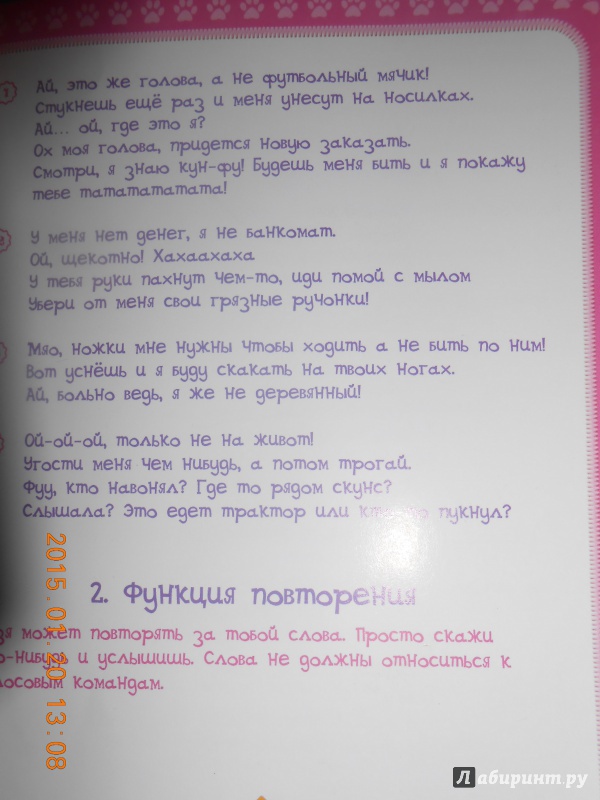 Ай, это же голова, а не футбольный мячик!
Стукнешь ещё раз и меня унесут на носилках.
Ай... ой, где это я?
Ох моя голова, придется новую заказать.
Смотри, я знаю кун-фу! Будешь меня бить и я покажу
тебе тататататата!
У меня нет денег, я не банкомат.
Ой, щекотно! Хахаахаха
У тебя руки пахнут чем-то, иди помой с мылом
Убери от меня свои грязные ручонки!
Мяо, ножки мне нужны чтобы ходить а не бить по ним!
Вот уснёшь и я буду скакать на твоих ногах.
Ай, больно ведь, я же не деревянный!
Ой-ой-ой, только не на живот!
Угости меня чем нибудь, а потом трогай.
Фуу, кто навонял? Где то рядом скунс?
Слышала? Это едет трактор или пукнул?
2. Функция повторения
может повторять за тобой слова. Просто скажи
и услышишь. Слова не должны относиться к
командам.
2015.01.20 13:08
Лабиринт.ру